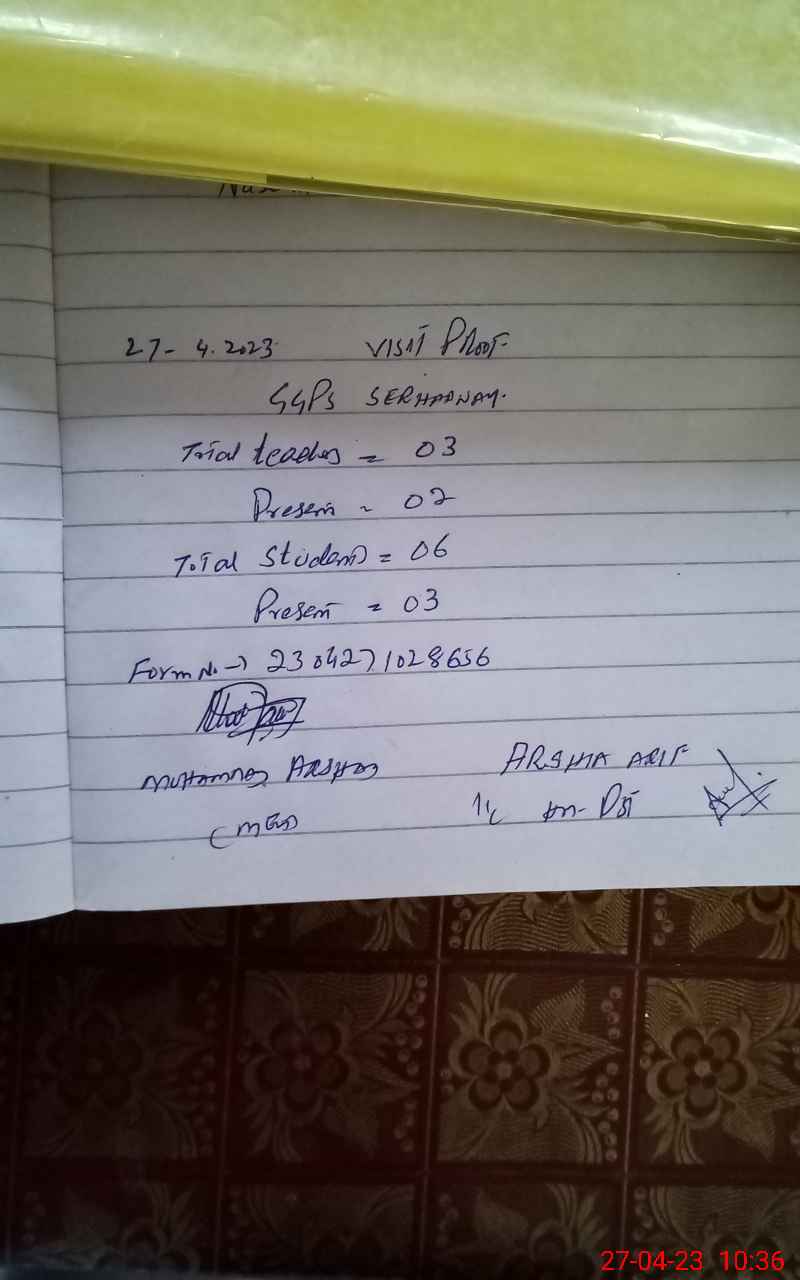 27-4.2023 VISIT PROOF
GGPS SERHADNAY.
Total teaches = 03
Present = 02
Total Students = 06
Present = 03
Form No. → 2304271028656
MUHAMMAD ARSHAD ARSHIA ARIF
(MEO) I/C
27-04-23 10:36